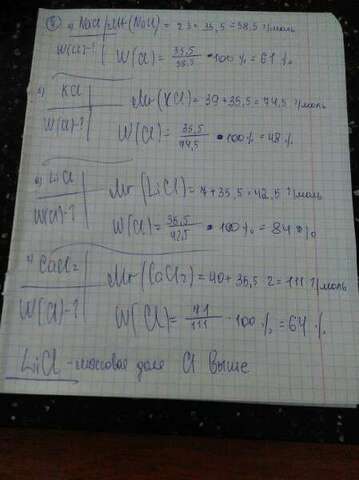 ⑤ а) NaCl Mr(NaCl) = 23 + 35,5 = 58,5 г/моль
W(Cl)-? W(Cl) = 35,5/58,5 · 100 % = 61 %
KCl Mr(KCl) = 39 + 35,5 = 74,5 г/моль
W(Cl)-? W(Cl) = 35,5/74,5 · 100 % = 48 %
в) LiCl Mr(LiCl) = 7 + 35,5 = 42,5 г/моль
W(Cl)-? W(Cl) = 35,5/42,5 · 100 % = 84 %
CaCl₂ Mr(CaCl₂) = 40 + 35,5 · 2 = 111 г/моль
W(Cl)-? W(Cl) = 71/111 · 100 % = 64 %
LiCl - массовая доля Cl выше